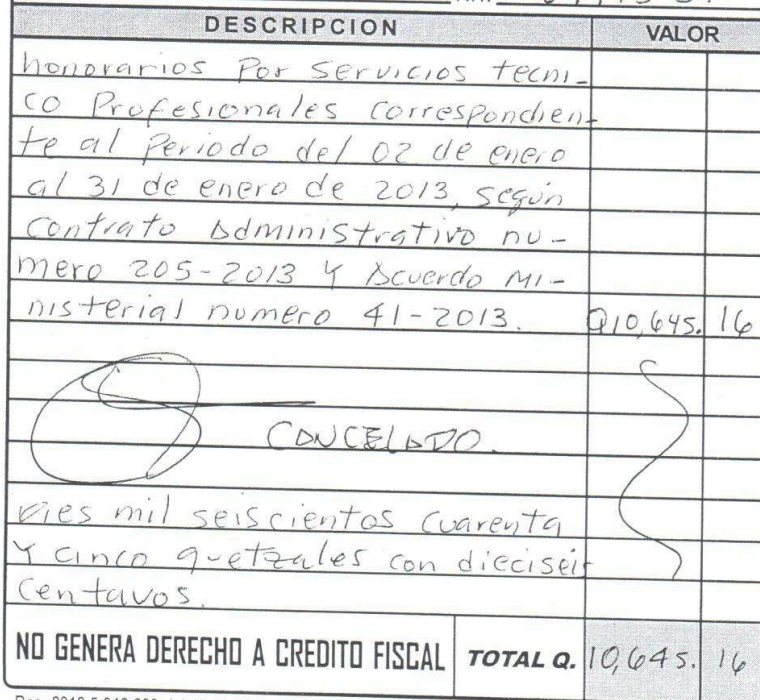 DESCRIPCION VALOR
honorarios Por Servicios tecni-
co Profesionales correspondien-
te al Periodo del 02 de enero
al 31 de enero de 2013, según
Contrato Administrativo nu-
mero 205-2013 Y Acuerdo Mi-
nisterial numero 41-2013. Q10,645. 16
CANCELADO.
Dies mil seiscientos cuarenta
Y cinco quetzales con dieciseis
Centavos.
NO GENERA DERECHO A CREDITO FISCAL TOTAL Q. 10,645. 16